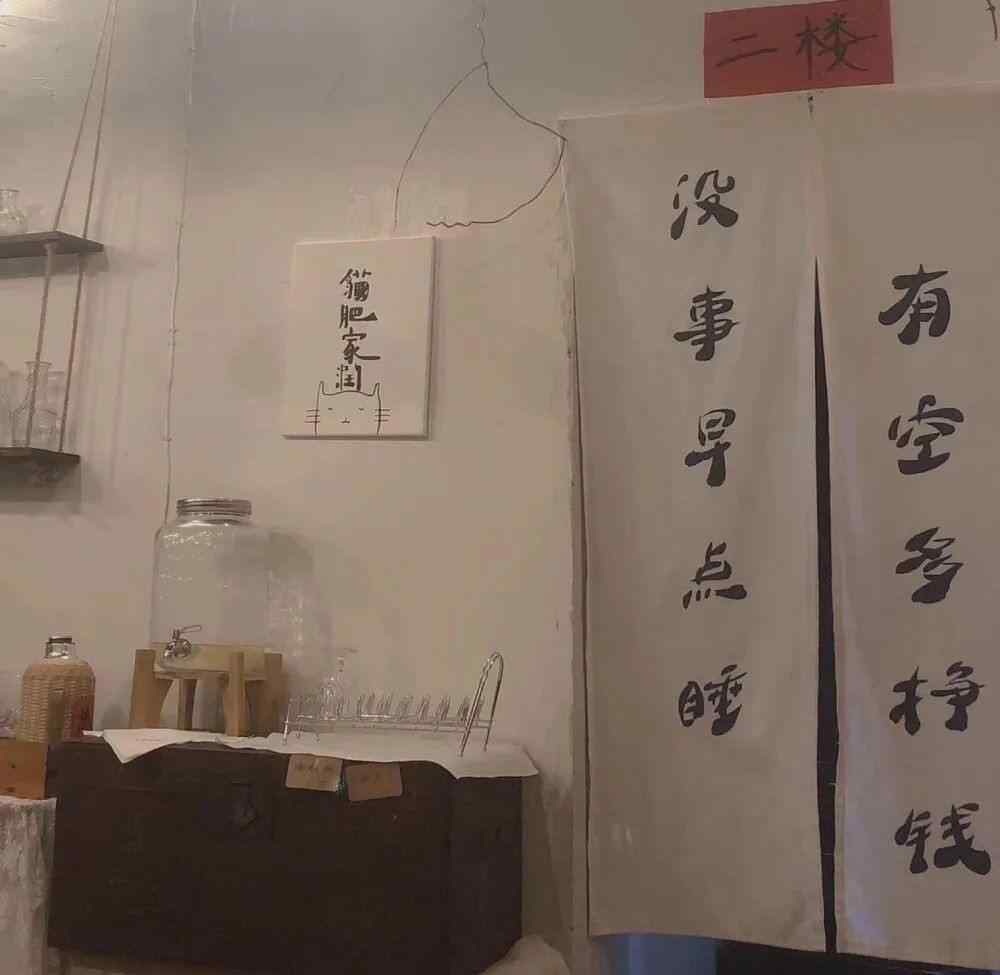 二楼
没事早点睡
有空多挣钱
貓肥家润